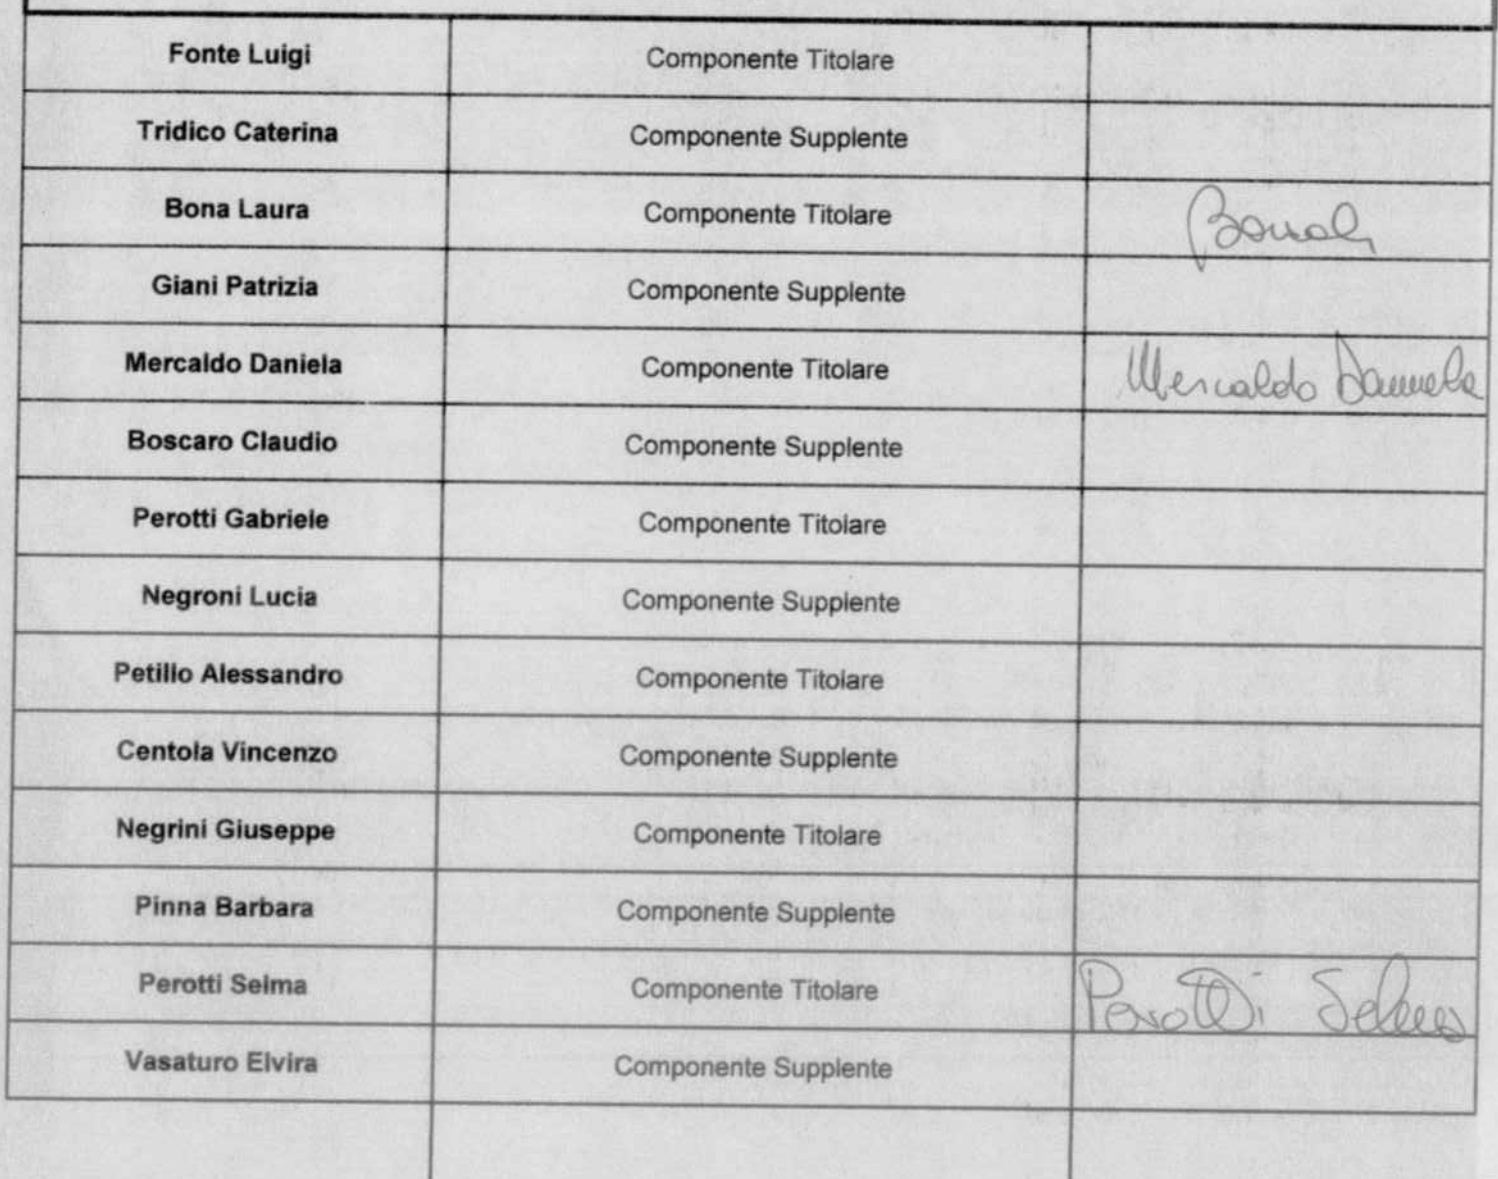 Fonte Luigi Componente Titolare
Tridico Caterina Componente Supplente
Bona Laura Componente Titolare
Giani Patrizia Componente Supplente
Mercaldo Daniela Componente Titolare Mercaldo Daniela
Boscaro Claudio Componente Supplente
Perotti Gabriele Componente Titolare
Negroni Lucia Componente Supplente
Petillo Alessandro Componente Titolare
Centola Vincenzo Componente Supplente
Negrini Giuseppe Componente Titolare
Pinna Barbara Componente Supplente
Perotti Selma Componente Titolare Perotti Selma
Vasaturo Elvira Componente Supplente